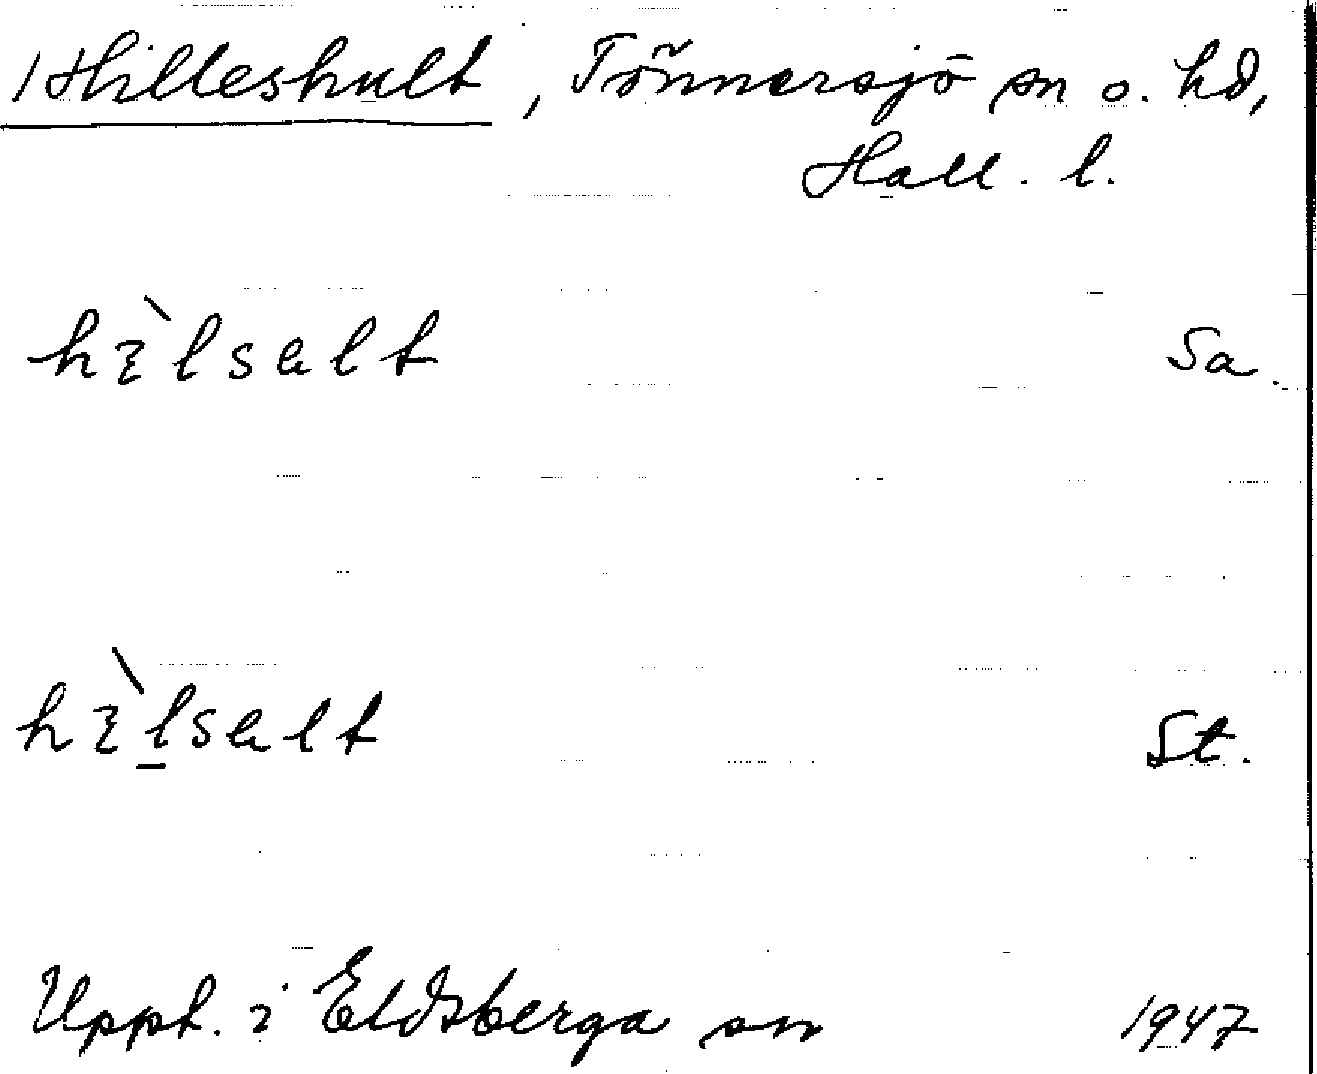 Hilleshult, Tönnersjö sn o. hd,
Hall. l.
hɛ̀lsalt Sa.
hɛ̀l̠salt St.
Uppt. i Eldsberga sn 1947